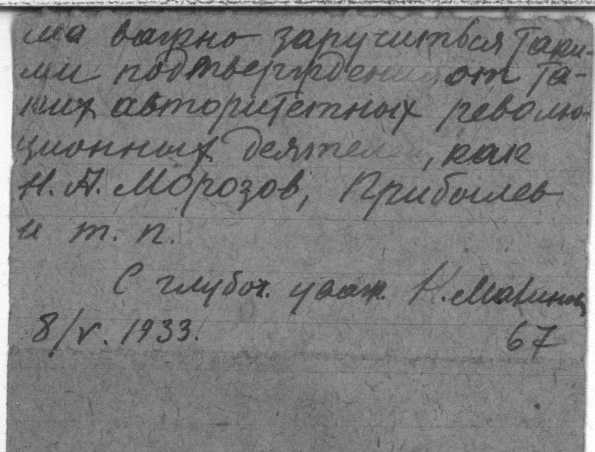 ма важно заручиться таки-
ми подтверждения от та-
ких авторитетных револю-
ционных деятелей, как
Н. А. Морозов, Прибылев
и т. п.
С глубок. уваж.
8/V. 1933. 67